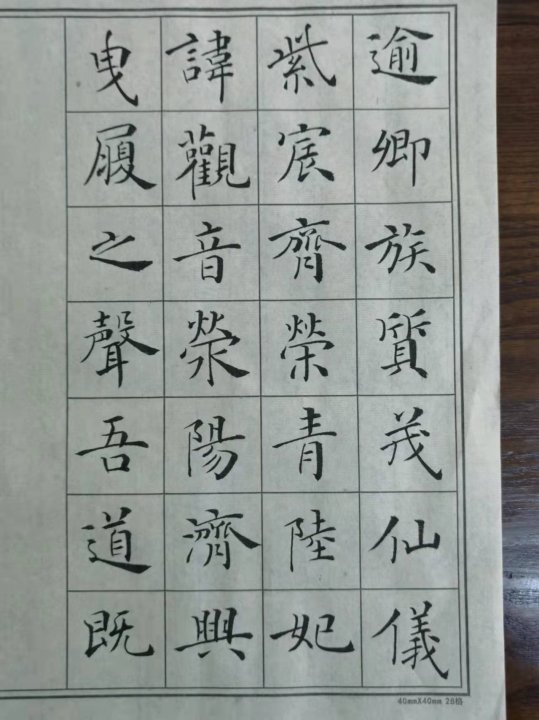 逾卿族質茂仙儀
紫宸齊榮青陸妃
諱觀音滎陽濟興
曳履之聲吾道既
40mmX40mm 28格